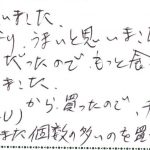 いました。
り、うまいと思いまし
だったので もっと食
きました。
U) から買ったので、チ
また個数の多いのを買